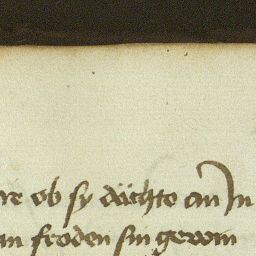 re ob sy dächte an In
an froden sin gewin